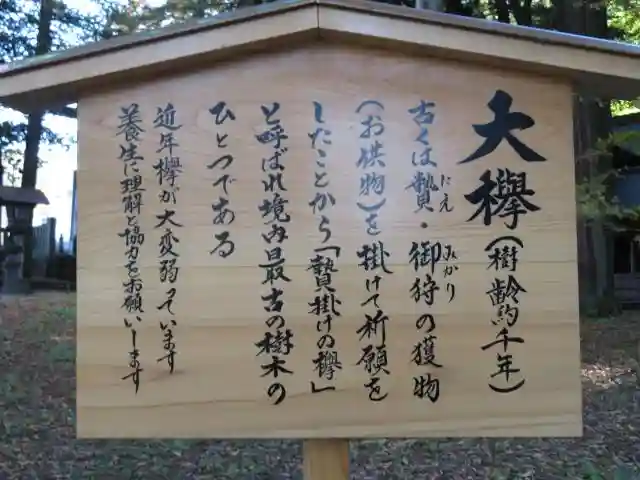 大欅（樹齢約千年）
古くは贄・御狩の獲物
にえ
みかり
（お供物）を掛けて祈願を
したことから「贄掛けの欅」
と呼ばれ境内最古の樹木の
ひとつである
近年欅が大変弱っています
養生に理解と協力をお願いします